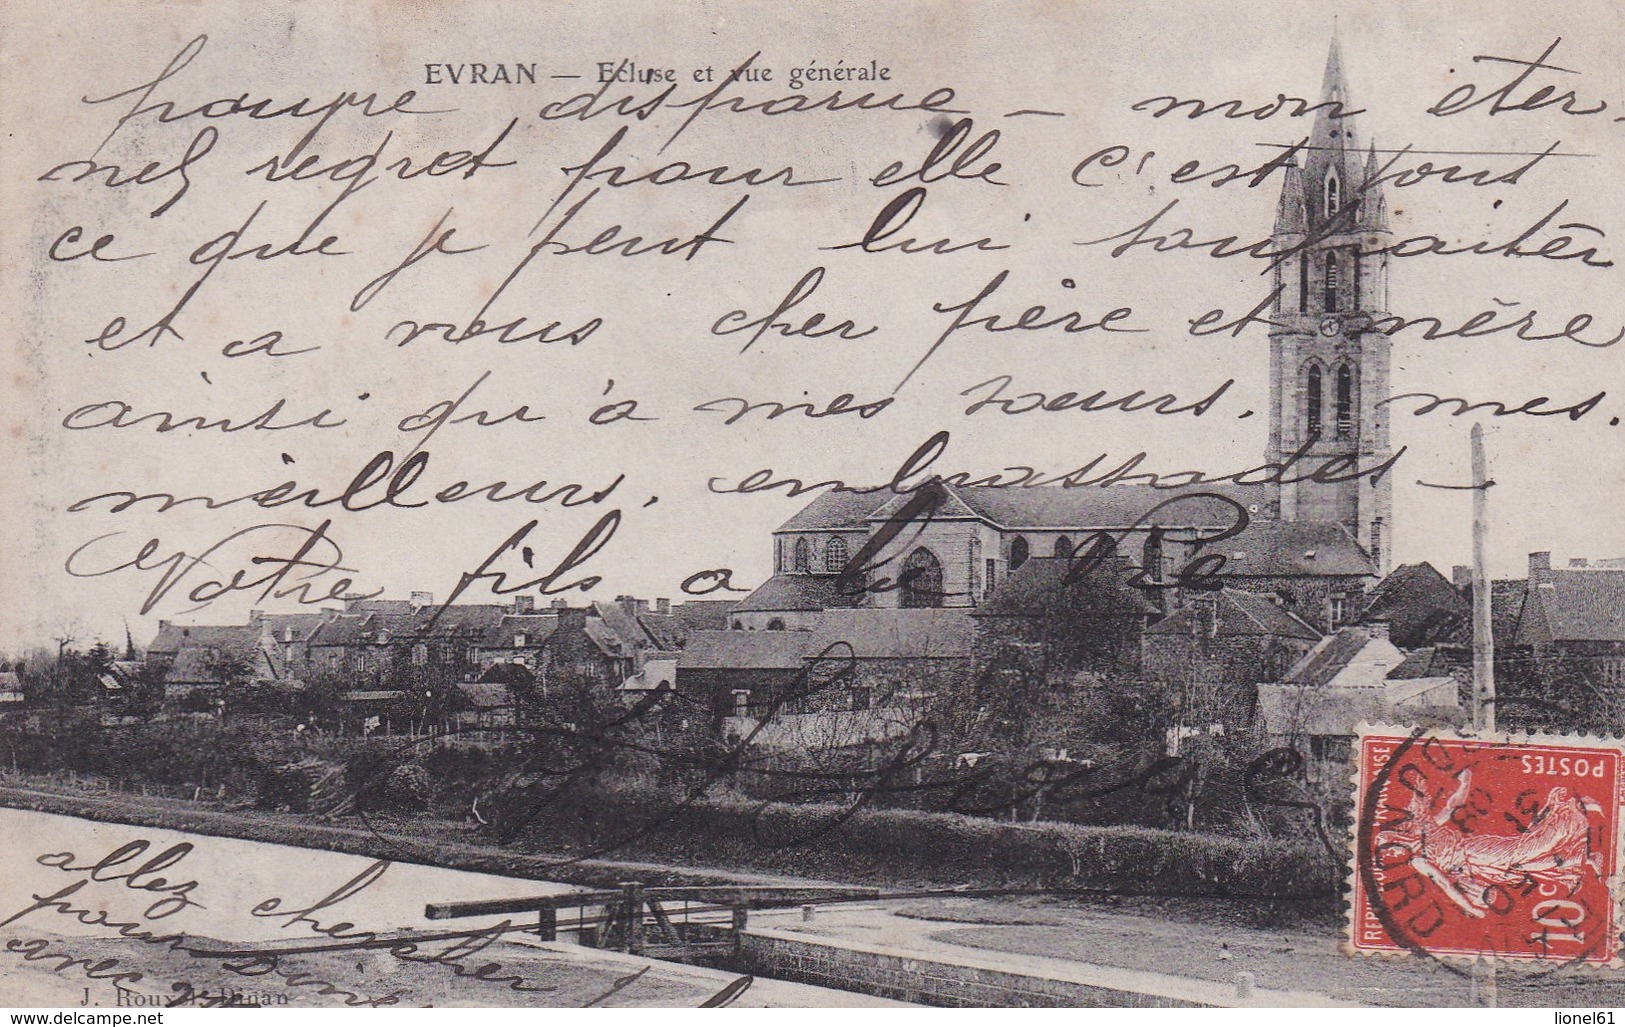 EVRAN — Ecluse et vue générale
pauvre disparue — mon éter-
nel regret pour elle c'est tout
ce que je peut lui souhaiter
et a vous cher père et mère
ainsi qu'a mes sœurs. mes.
meilleurs. embrassades —
Votre fils a la vie
allez chercher
pour
avec
J. Rouxel, Dinan
POSTES
10c
www.delcampe.net
lionel61